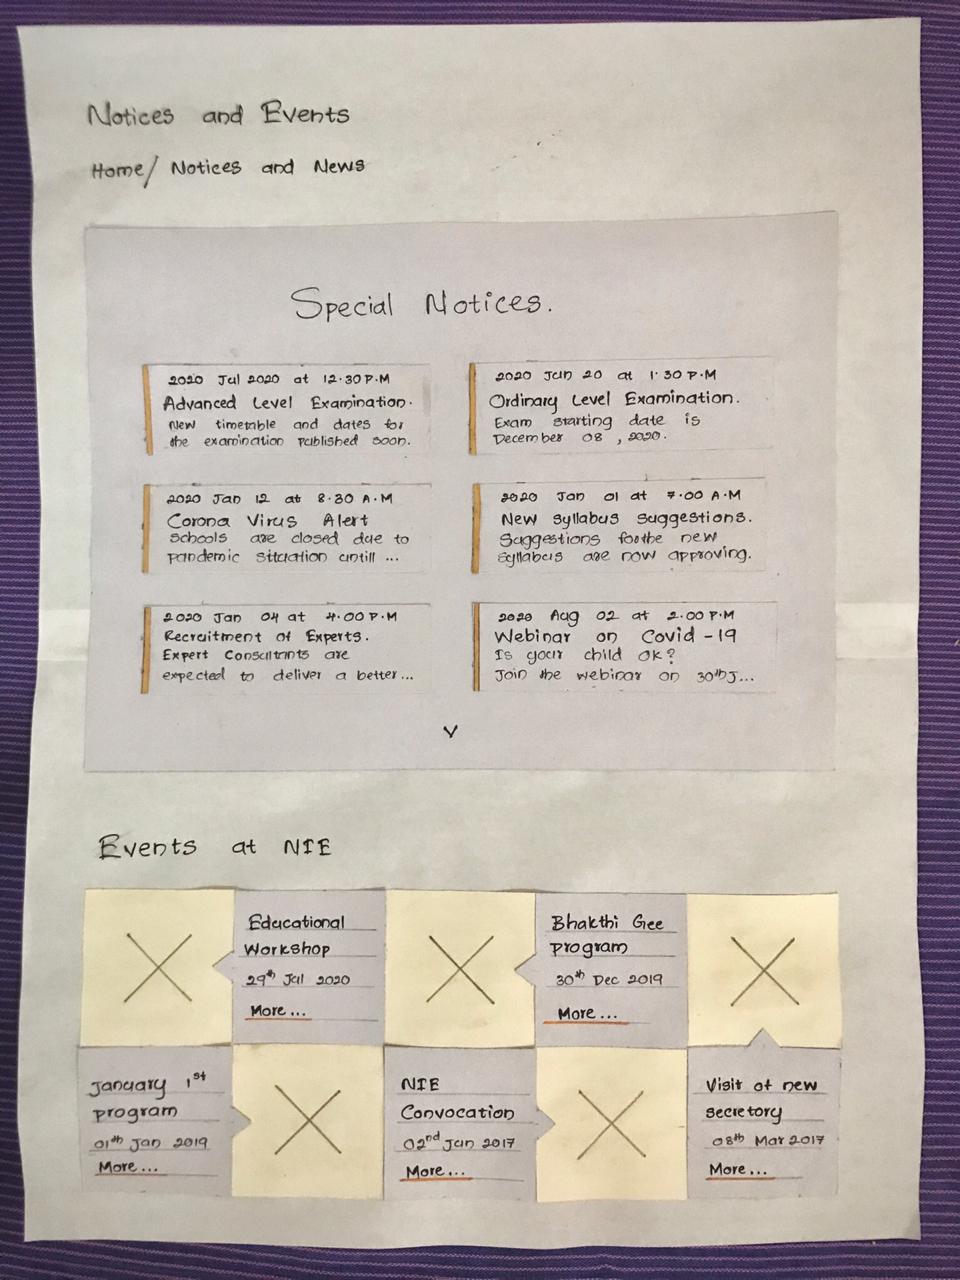 Notices and Events
Home/ Notices and News
Special Notices.
2020 Jul 2020 at 12.30 P.M
Advanced Level Examination.
New timetable and dates for
the examination published soon.
2020 Jun 20 at 1.30 P.M
Ordinary Level Examination.
Exam starting date is
December 08 , 2020.
2020 Jan 12 at 8.30 A.M
Corona Virus Alert
schools are closed due to
pandemic situation untill ...
2020 Jan 01 at 7.00 A.M
New syllabus suggestions.
Suggestions for the new
syllabus are now approving.
2020 Jan 04 at 4.00 P.M
Recruitment of Experts.
Expert Consultants are
expected to deliver a better...
2020 Aug 02 at 2.00 P.M
Webinar on Covid -19
Is your child OK?
Join the webinar on 30th J...
Events at NIE
Educational
Workshop
29th Jul 2020
More ...
Bhakthi Gee
program
30th Dec 2019
More ...
January 1st
program
01th Jan 2019
More ...
NIE
Convocation
02nd Jun 2017
More...
Visit of new
secretory
08th Mar 2017
More...